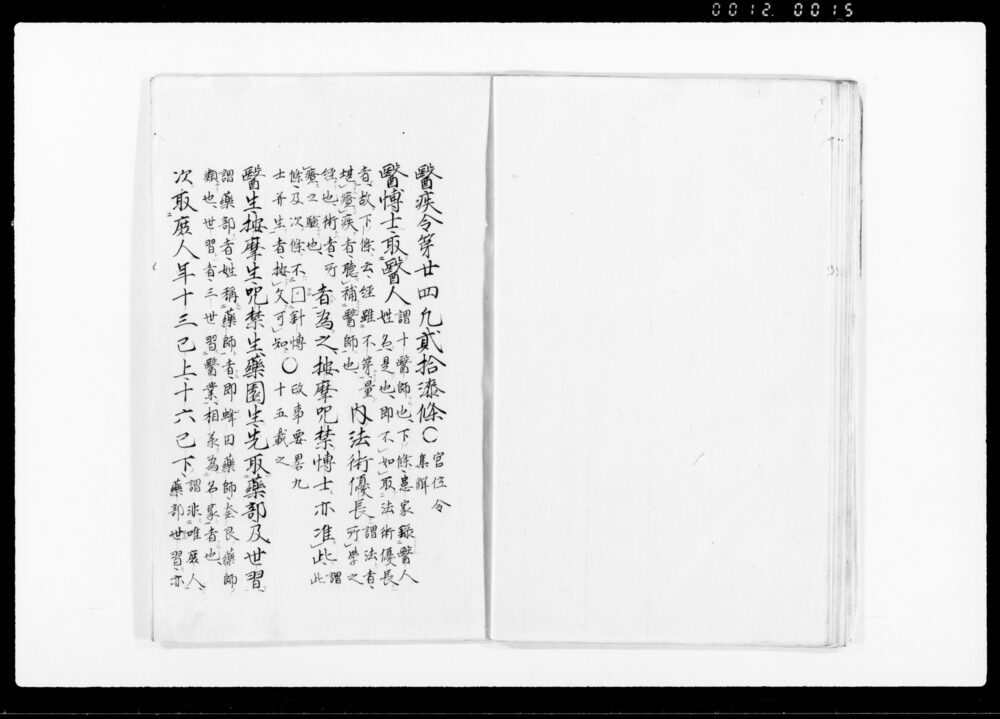 0012 0015
醫疾令第廿四 凡貳拾漆條〇官位令
集解
醫博士取醫人謂十醫師也下條患家錄醫人
姓名是也即不如取法術優長
者故下條云經雖不第量
堪療疾者聽補醫師也
内法術優長謂法者
所學之
経也術者所
療之驗也
者為之按摩咒禁博士亦准此謂
此
條及次條不囗針博
士并生者按文可知
〇政事要畧九
十五載之
醫生按摩生咒禁生藥園生先取藥部及世習
謂藥部者姓稱藥師者即蜂田藥師奈良藥師
類也世習者三世習醫業相承為名家者也
次取庶人年十三已上十六已下謂非唯庶人
藥部世習亦